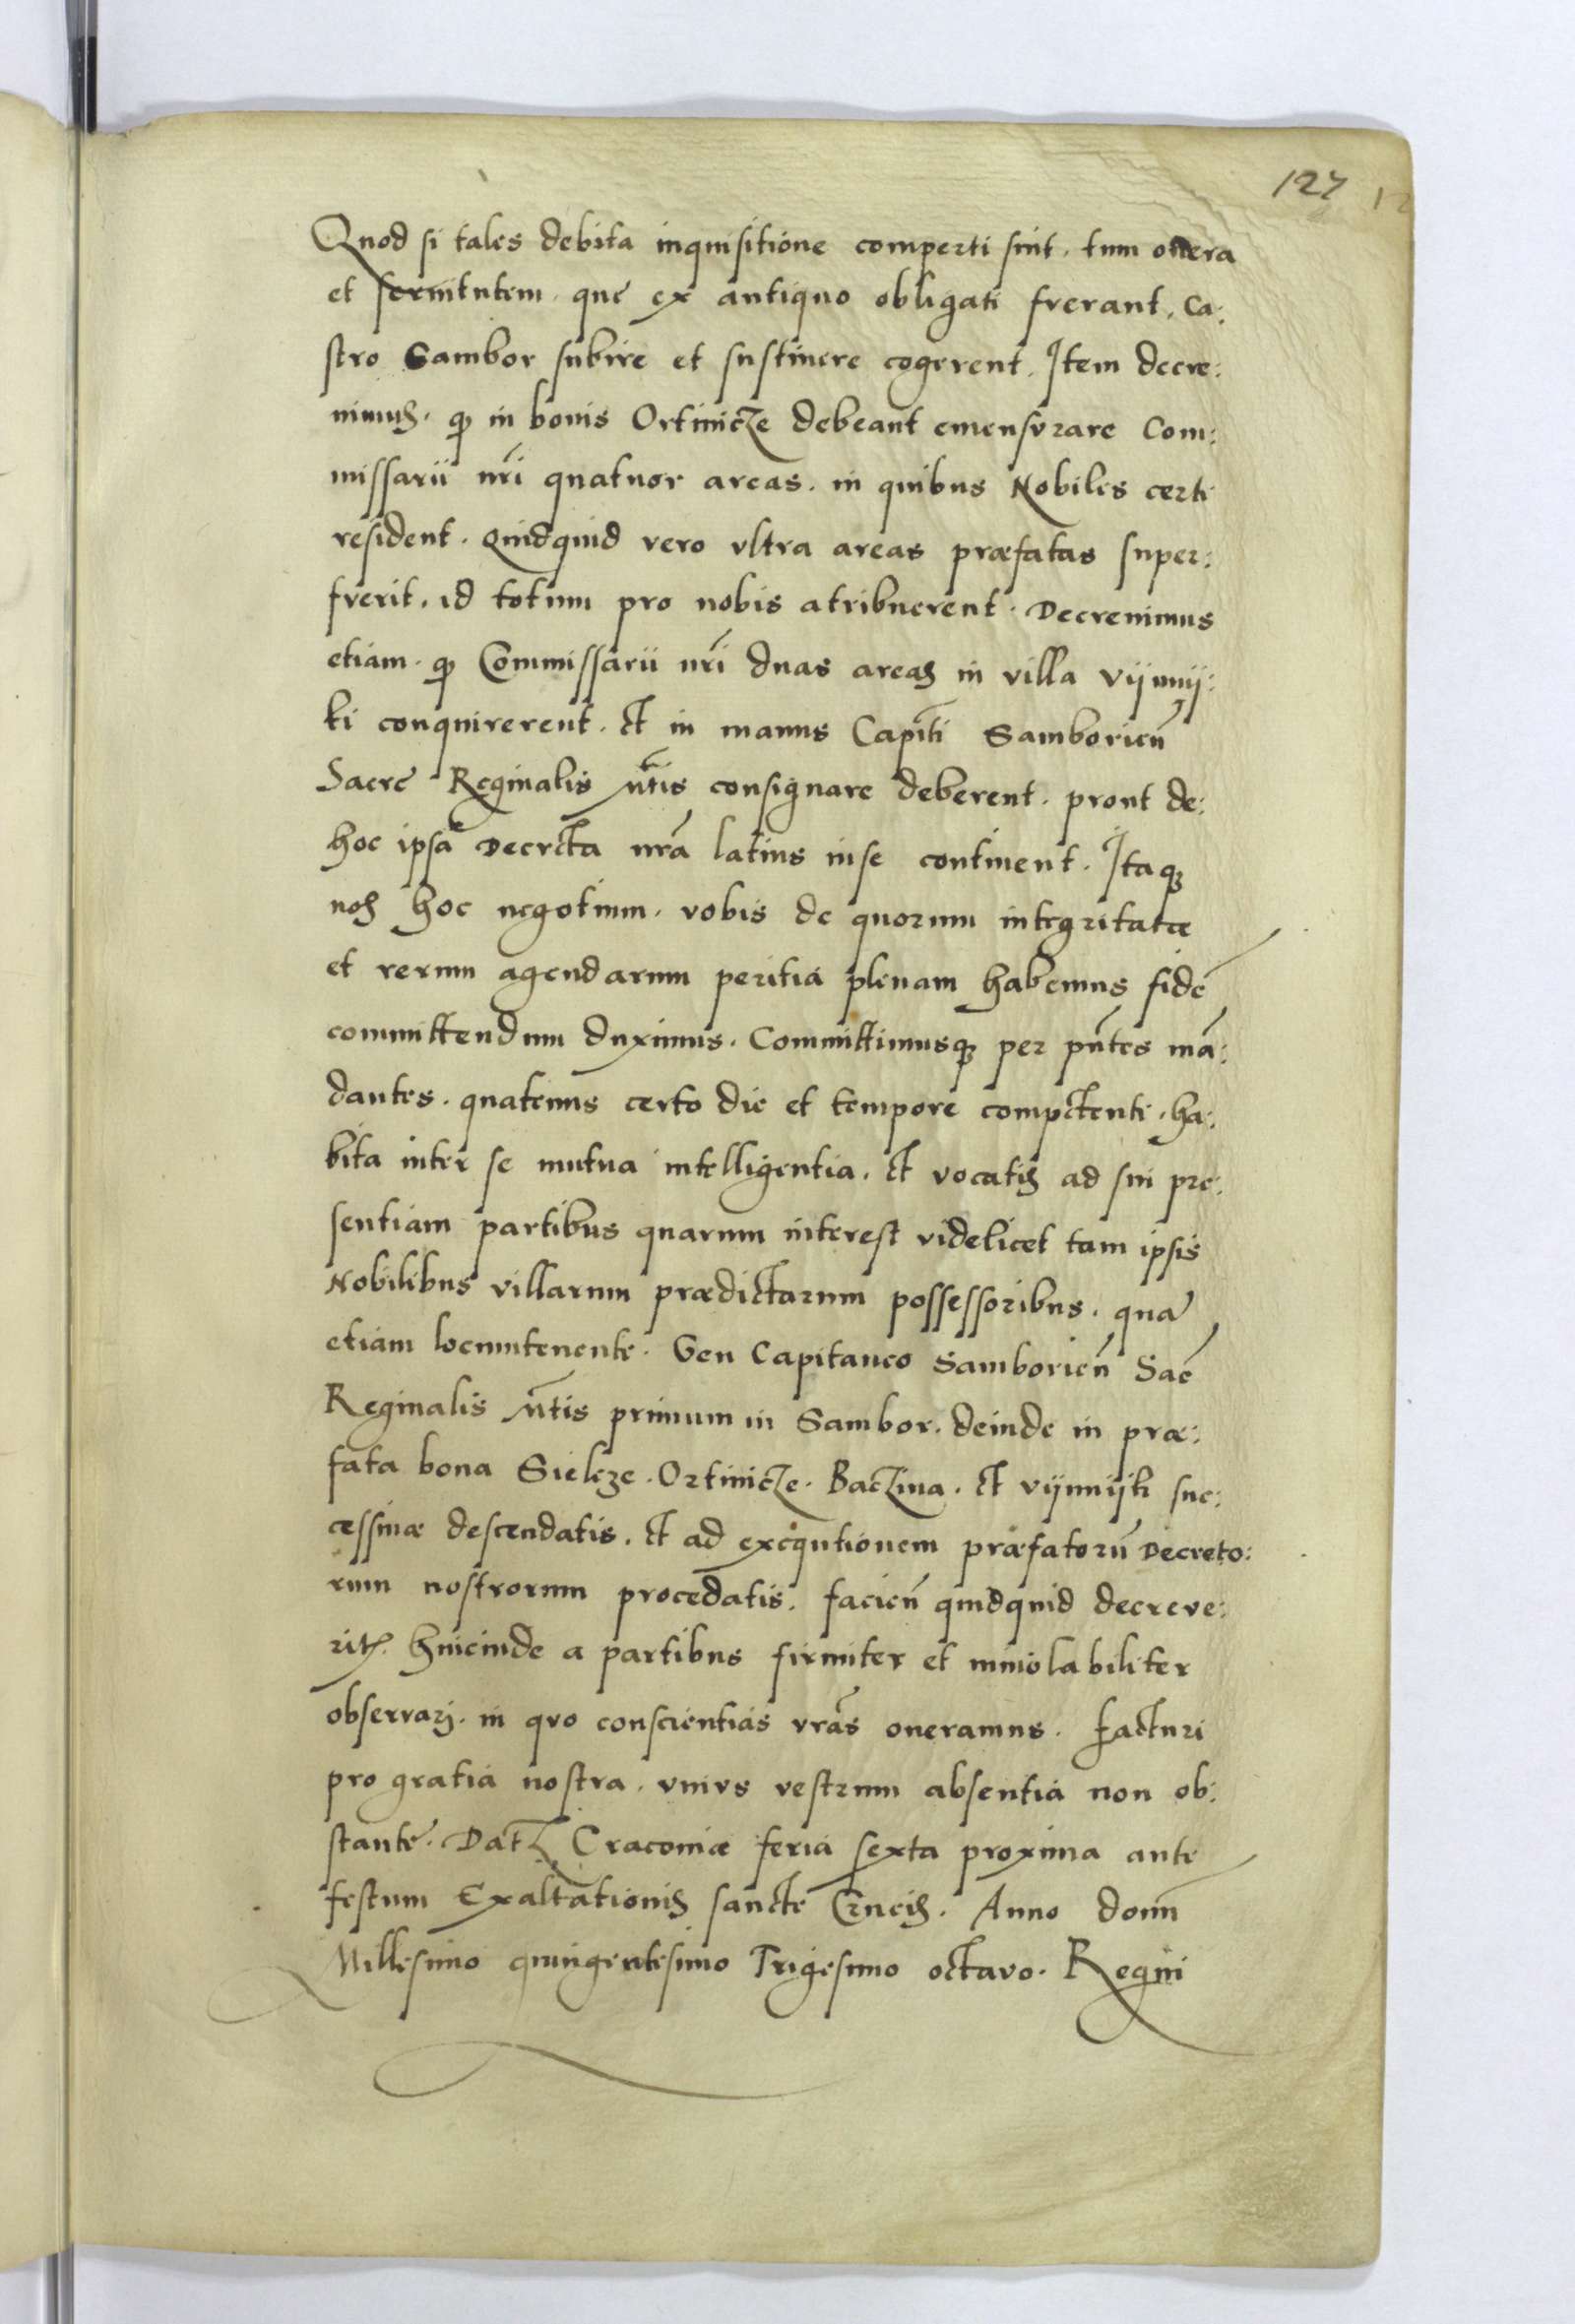 127
Quod si tales debita inquisitione comperti sint. tum onera
et seruitutem. que ex antiquo obligati fverant. Ca:
stro Sambor subire et sustinere cogerent. Item decre:
uimus. qȝ in bonis Ortinicze debeant emensvrare Com:
missarii nr̃i quatuor areas. in quibus Nobiles certi
resident. Quidquid vero vltra areas præfatas super:
fverit. id totum pro nobis atribuerent. Decreuimus
etiam. qȝ Commissarii nr̃i duas areas in villa Vijnnij:
ki conquirerent. et in manus Capĩti Samborieñ
Sacre Reginalis Mt̃is consignare deberent. prout de:
hoc ipsa Decreta nrã latius in se continent. Itaqȝ
nos hoc negotium. vobis de quorum integritate
et rerum agendarum peritia plenam habemus fidẽ
committendum duximus. Committimusqȝ per pñtes mã:
dantes. quatenus certo die et tempore competenti. ha:
bita inter se mutua intelligentia. et vocatis ad sui pre:
sentiam partibus quarum interest videlicet tam ipsis
Nobilibus villarum prædictarum possessoribus. quã
etiam locumtenente. Gen Capitaneo Samborieñ Sac̃
Reginalis Mt̃is primum in Sambor. deinde in præ:
fata bona Sielcze. Ortinicze. Baczina. et Vijnnijki suc:
cessiuæ descendatis. et ad exequtionem præfatorũ Decreto:
rum nostrorum procedatis. facieñ quidquid decreve:
ritȝ. hincinde a partibus firmiter et inuiolabiliter
observarj. in qvo conscientias vrãs oneramus. facturi
pro gratia nostra. vnivs vestrum absentia non ob:
stante. Datȝ Cracouiæ feria sexta proxima ante
festum Exaltationis sancte Crucis. Anno domĩ
Millesimo quingentesimo Trigesimo octavo. Regni